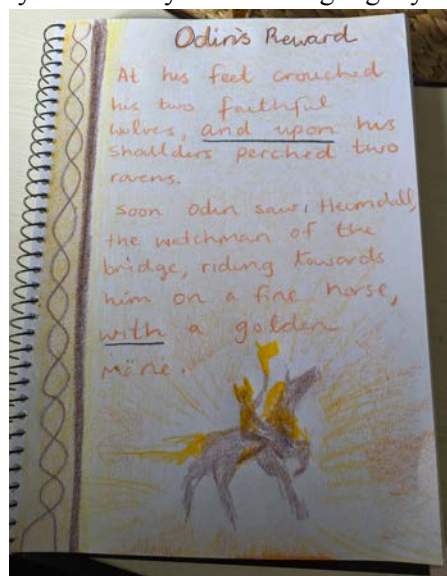 Odin's Reward
At his feet crouched
his two faithful
wolves, and upon his
shoulders perched two
ravens.
soon Odin saw, Heimdall,
the watchman of the
bridge, riding towards
him on a fine horse,
with a golden
mane.